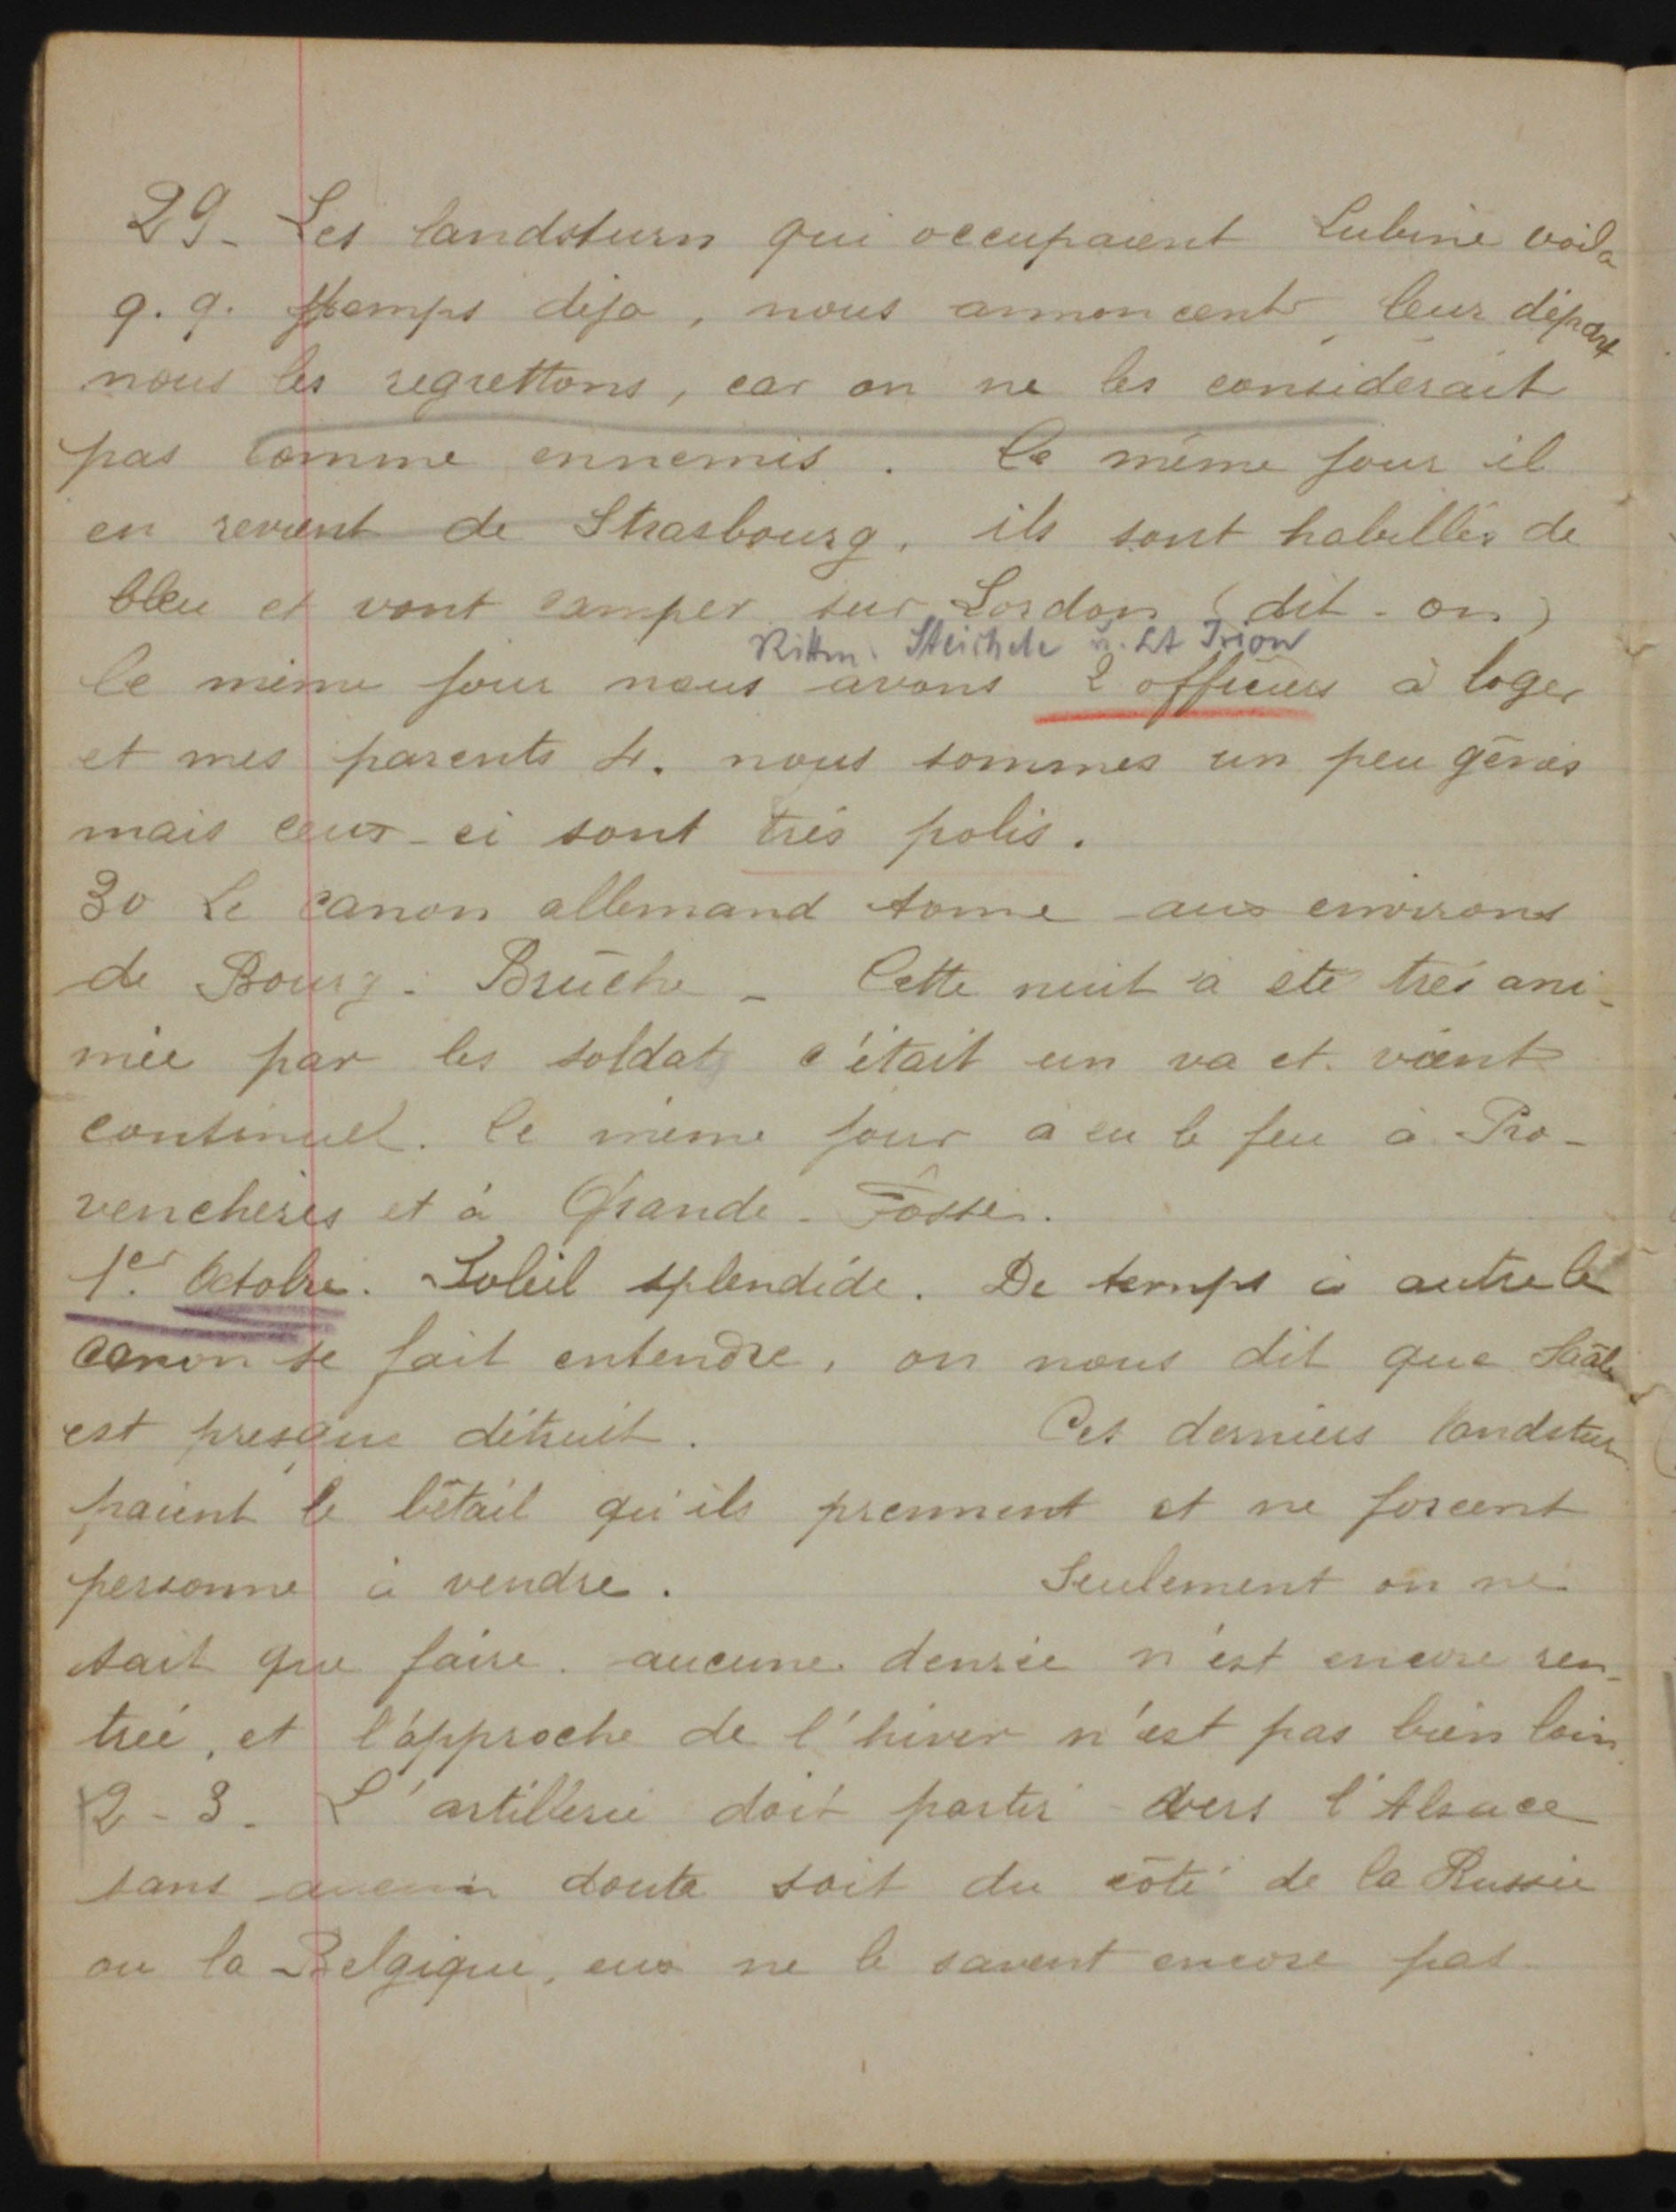 29 - Les landsturn qui occupaient Lubine voila
q. q. temps déja, nous annoncent leur départ
nous les regrettons, car on ne les considérait
pas comme ennemis. Le même jour il
en revient de Strasbourg, ils sont habillés de
bleu et vont camper sur Lordon (dit-on)
Rittm. Steichele u. Lt Irion
le même jour nous avons 2 officiers à loger
et mes parents 4. nous sommes un peu gênés
mais ceux-ci sont très polis.
30 Le canon allemand tonne aux environs
de Bourg-Brûche - Cette nuit a été très ani-
mée par les soldats c'était un va et vient
continuel. le même jour a eu le feu à Pro-
venchères et à Grande-Fosse.
1er Octobre. Soleil splendide. De temps à autre le
canon se fait entendre, on nous dit que Saâles
est presque détruit. Ces derniers landsturn
paient le bétail qu'ils prennent et ne forcent
personne à vendre. Seulement on ne
sait que faire. aucune denrée n'est encore ren-
trée, et l'approche de l'hiver n'est pas bien loin.
2 - 3. L'artillerie doit partir vers l'Alsace
sans aucun doute soit du côté de la Russie
ou la Belgique, eux ne le savent encore pas.